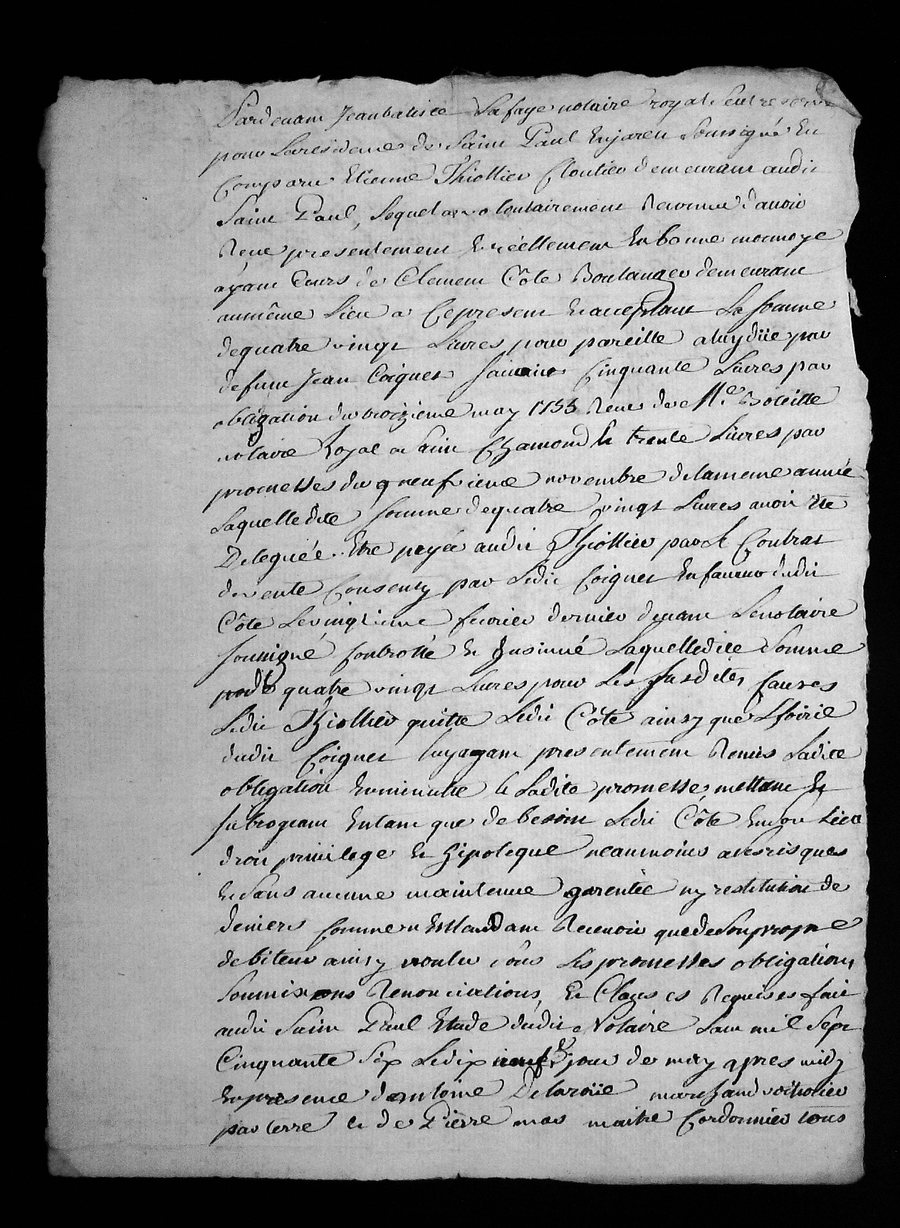 Pardevant Jeanbatiste Lafaye notaire royal Et reservé
pour La residence de Saint Paul Enjarest Soussigné En
Comparu Etienne Thiollier Cloutier demeurant audit
Saint Paul, Lequel a volontairement Reconnu d'avoir
Receu presentement Et réellement En bonne monnoye
ayant Cours de Clement Côte Boulanger demeurant
aumême Lieu a Cepresent Et acceptant La somme
dequatre vingt Livres pour pareille a luy düe par
defunt Jean Coignet Cinquante Livres par
obligation du troizieme may 1755 Receu de Me Boteille
notaire Royal a Saint Chamond & trente Livres par
promesses du neufvieme novembre de la meme année
Laquelledite somme dequatre vingt Livres avoir été
Deleguée. Etre payée audit Thiollier par le Contrat
de vente Consenty par Ledit Coignet En faveur dudit
Côte Le vingtieme fevrier dernier devant Le notaire
soussigné Controllé Et Insinué Laquelledite Somme
de quatre vingt Livres pour Les susdites Causes
Ledit Thiollier quitte Ledit Côte ainsy que L'hoirie
dudit Coignet luy ayant presentement Remis Ladite
obligation En minutte & Ladite promesse, mettant Et
subrogeant Entant que de besoin Ledit Côte En son Lieu
droit privilege Et hipoteque neanmoins a ses risques
Et Sans aucune maintenue garentie ny restitution de
deniers Comme n'Entandant Recevoir que de Son propre
debiteur ainsy voulu sous Les promesses obligations
Soumissions Renonciations, Et Clauses Requises fait
audit Saint Paul Etude dudit Notaire L'an mil Sept
Cinquante Six Le dix neufe jour de may apres midy
En presence d'antoine Delaroüe marchand voiturier
par terre Et de Pierre mas maitre Cordonnier tous